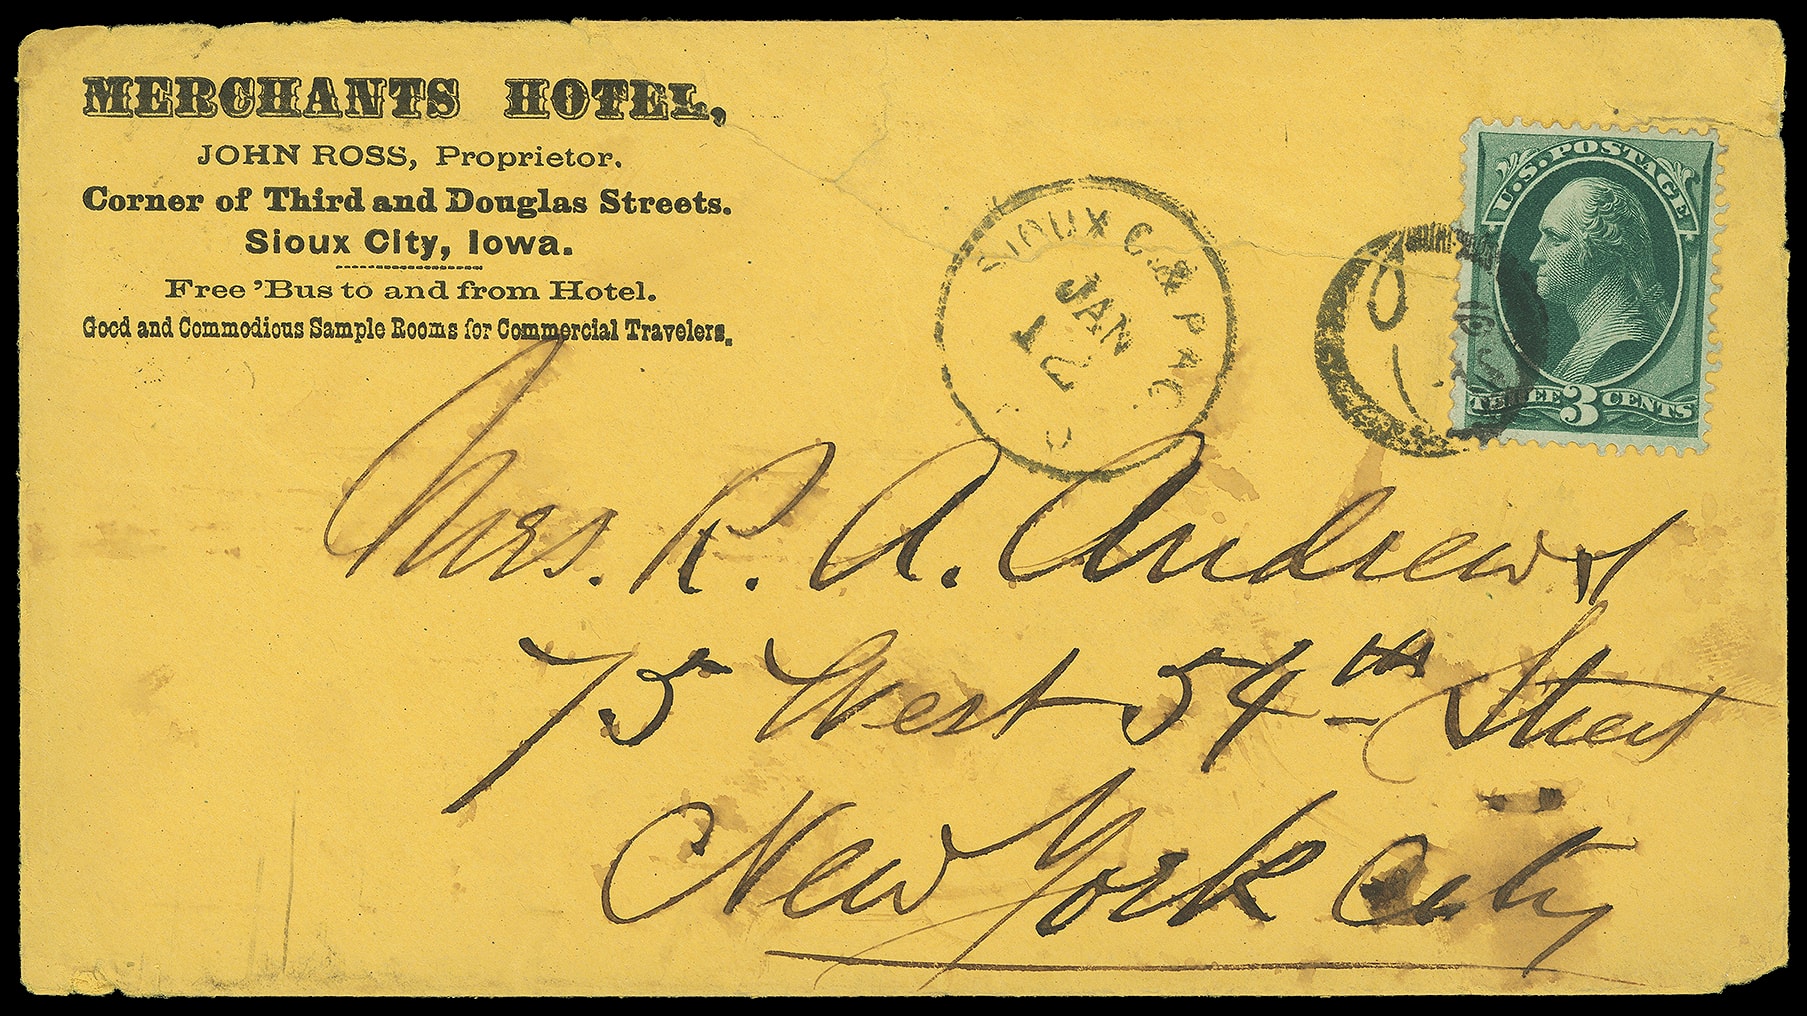 MERCHANTS HOTEL,
JOHN ROSS, Proprietor.
Corner of Third and Douglas Streets.
Sioux City, Iowa.
Free 'Bus to and from Hotel.
Good and Commodious Sample Rooms for Commercial Travelers.
SIOUX C. & PAC
JAN
12
U.S. POSTAGE
THREE 3 CENTS
Mrs. R. A. Andrews
75 West 54th Street
New York City